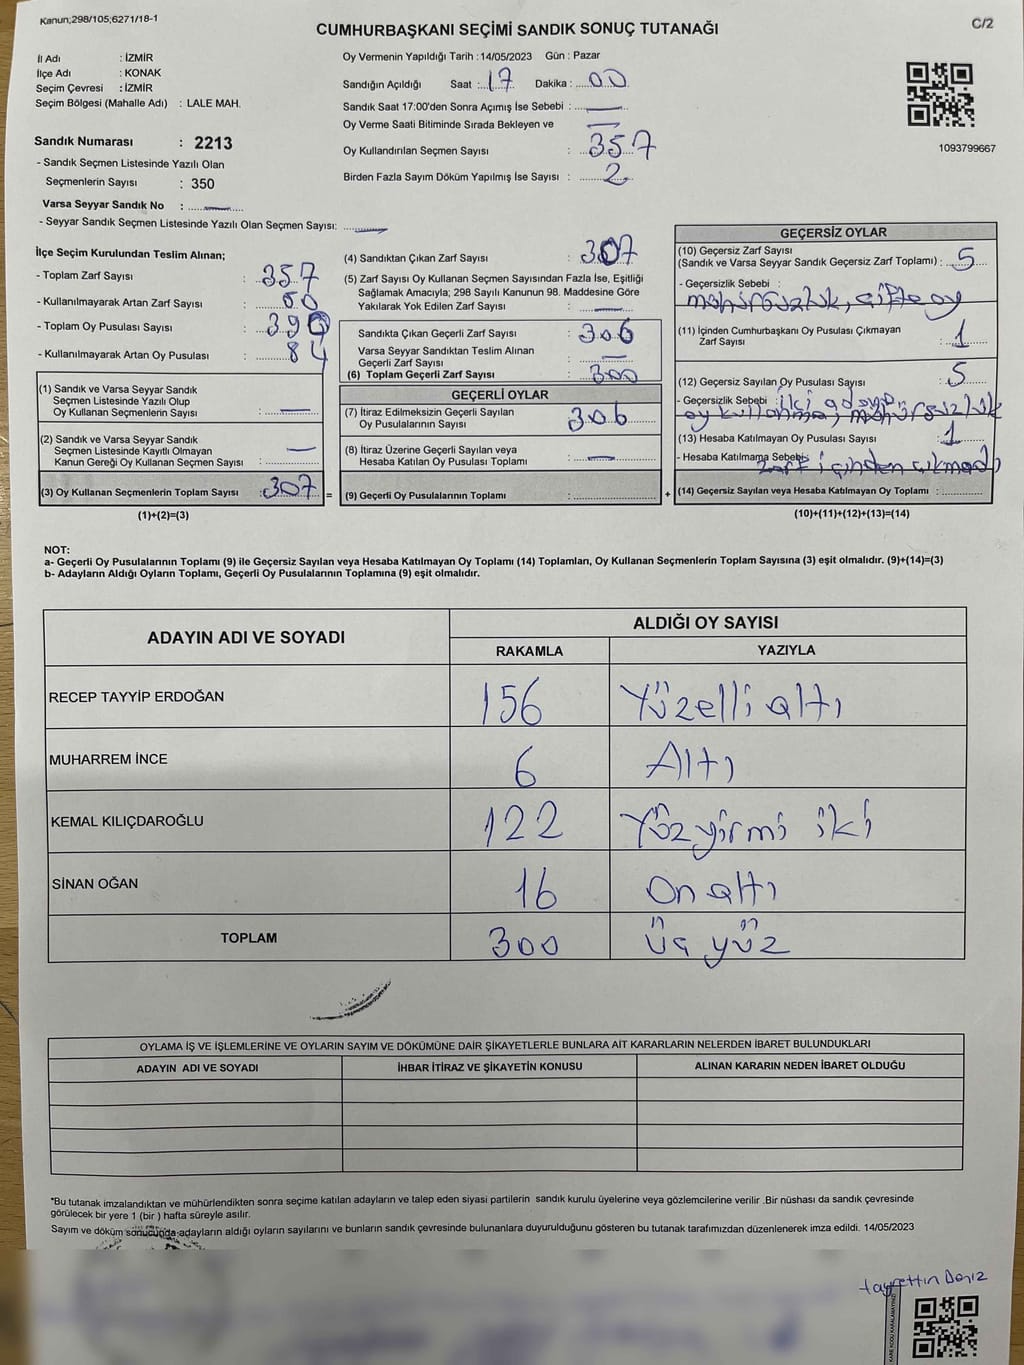 Kanun;298/105;6271/18-1
C/2
CUMHURBAŞKANI SEÇİMİ SANDIK SONUÇ TUTANAĞI
İl Adı : İZMİR
İlçe Adı : KONAK
Seçim Çevresi : İZMİR
Seçim Bölgesi (Mahalle Adı) : LALE MAH.
Sandık Numarası : 2213
- Sandık Seçmen Listesinde Yazılı Olan
Seçmenlerin Sayısı : 350
Varsa Seyyar Sandık No : —
- Seyyar Sandık Seçmen Listesinde Yazılı Olan Seçmen Sayısı: —
Oy Vermenin Yapıldığı Tarih : 14/05/2023 Gün : Pazar
Sandığın Açıldığı Saat : 17 Dakika : 00
Sandık Saat 17:00'den Sonra Açımış İse Sebebi : —
Oy Verme Saati Bitiminde Sırada Bekleyen ve —
Oy Kullandırılan Seçmen Sayısı : 357
Birden Fazla Sayım Döküm Yapılmış İse Sayısı : 2
1093799667
İlçe Seçim Kurulundan Teslim Alınan;
- Toplam Zarf Sayısı : 357
- Kullanılmayarak Artan Zarf Sayısı : 50
- Toplam Oy Pusulası Sayısı : 390
- Kullanılmayarak Artan Oy Pusulası : 84
(1) Sandık ve Varsa Seyyar Sandık
Seçmen Listesinde Yazılı Olup
Oy Kullanan Seçmenlerin Sayısı : —
(2) Sandık ve Varsa Seyyar Sandık
Seçmen Listesinde Kayıtlı Olmayan
Kanun Gereği Oy Kullanan Seçmen Sayısı : —
(3) Oy Kullanan Seçmenlerin Toplam Sayısı : 307 =
(1)+(2)=(3)
(4) Sandıktan Çıkan Zarf Sayısı : 307
(5) Zarf Sayısı Oy Kullanan Seçmen Sayısından Fazla İse, Eşitliği
Sağlamak Amacıyla; 298 Sayılı Kanunun 98. Maddesine Göre
Yakılarak Yok Edilen Zarf Sayısı : —
Sandıkta Çıkan Geçerli Zarf Sayısı : 306
Varsa Seyyar Sandıktan Teslim Alınan
Geçerli Zarf Sayısı : —
(6) Toplam Geçerli Zarf Sayısı : 300
GEÇERLİ OYLAR
(7) İtiraz Edilmeksizin Geçerli Sayılan
Oy Pusulalarının Sayısı : 306
(8) İtiraz Üzerine Geçerli Sayılan veya
Hesaba Katılan Oy Pusulası Toplamı : —
(9) Geçerli Oy Pusulalarının Toplamı : +
GEÇERSİZ OYLAR
(10) Geçersiz Zarf Sayısı
(Sandık ve Varsa Seyyar Sandık Geçersiz Zarf Toplamı) : 5
- Geçersizlik Sebebi :
mühürsüzlük, çifte oy
(11) İçinden Cumhurbaşkanı Oy Pusulası Çıkmayan
Zarf Sayısı : 1
(12) Geçersiz Sayılan Oy Pusulası Sayısı : 5
- Geçersizlik Sebebi : ilçi adayp
oy kullanma, mühürsüzlük
(13) Hesaba Katılmayan Oy Pusulası Sayısı : 1
- Hesaba Katılmama Sebebi:
zarf içinden çıkmadı
(14) Geçersiz Sayılan veya Hesaba Katılmayan Oy Toplamı :
(10)+(11)+(12)+(13)=(14)
NOT:
a- Geçerli Oy Pusulalarının Toplamı (9) ile Geçersiz Sayılan veya Hesaba Katılmayan Oy Toplamı (14) Toplamları, Oy Kullanan Seçmenlerin Toplam Sayısına (3) eşit olmalıdır. (9)+(14)=(3)
b- Adayların Aldığı Oyların Toplamı, Geçerli Oy Pusulalarının Toplamına (9) eşit olmalıdır.
ADAYIN ADI VE SOYADI ALDIĞI OY SAYISI
RAKAMLA YAZIYLA
RECEP TAYYİP ERDOĞAN 156 Yüzelli altı
MUHARREM İNCE 6 Altı
KEMAL KILIÇDAROĞLU 122 Yüzyirmi iki
SİNAN OĞAN 16 On altı
TOPLAM 300 üç yüz
OYLAMA İŞ VE İŞLEMLERİNE VE OYLARIN SAYIM VE DÖKÜMÜNE DAİR ŞİKAYETLERLE BUNLARA AİT KARARLARIN NELERDEN İBARET BULUNDUKLARI
ADAYIN ADI VE SOYADI İHBAR İTİRAZ VE ŞİKAYETİN KONUSU ALINAN KARARIN NEDEN İBARET OLDUĞU
*Bu tutanak imzalandıktan ve mühürlendikten sonra seçime katılan adayların ve talep eden siyasi partilerin sandık kurulu üyelerine veya gözlemcilerine verilir .Bir nüshası da sandık çevresinde
görülecek bir yere 1 (bir ) hafta süreyle asılır.
Sayım ve döküm sonucunda adayların aldığı oyların sayılarını ve bunların sandık çevresinde bulunanlara duyurulduğunu gösteren bu tutanak tarafımızdan düzenlenerek imza edildi. 14/05/2023
Hayrettin Deniz